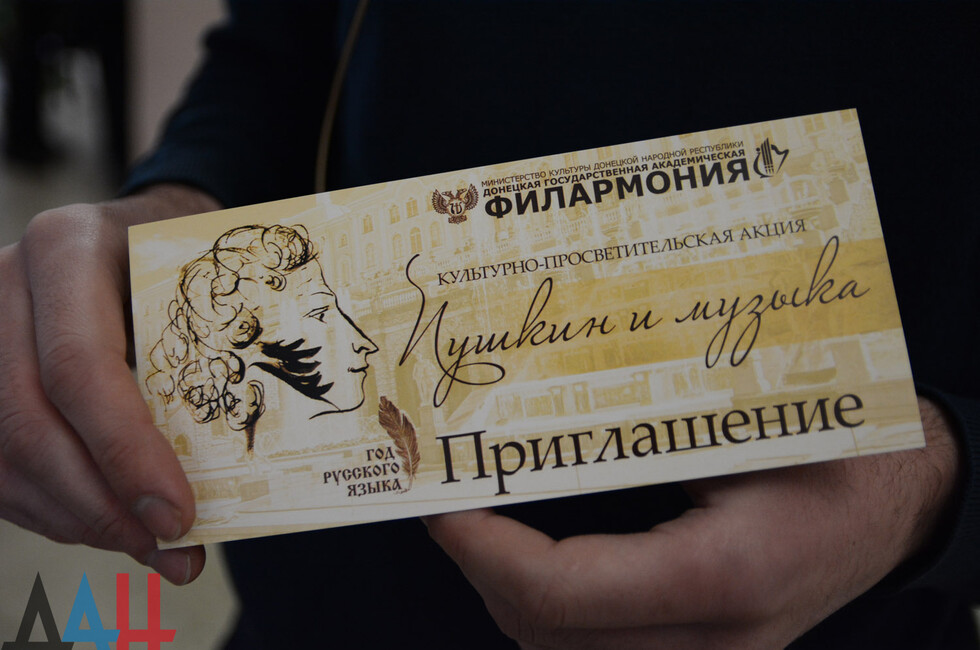 МИНИСТЕРСТВО КУЛЬТУРЫ ДОНЕЦКОЙ НАРОДНОЙ РЕСПУБЛИКИ
ДОНЕЦКАЯ ГОСУДАРСТВЕННАЯ АКАДЕМИЧЕСКАЯ
ФИЛАРМОНИЯ
КУЛЬТУРНО-ПРОСВЕТИТЕЛЬСКАЯ АКЦИЯ
Пушкин и музыка
Приглашение
ГОД
РУССКОГО
ЯЗЫКА
ДАН